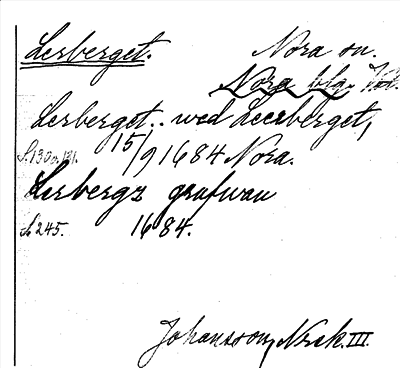 Lerberget. Nora sn.
Nora blg.
Lerberget.. wed Leerberget,
S. 130 o. 131. 15/9 1684 Nora.
Lerbergz grufwan
S. 245. 1684.
Johansson, Norak. III.